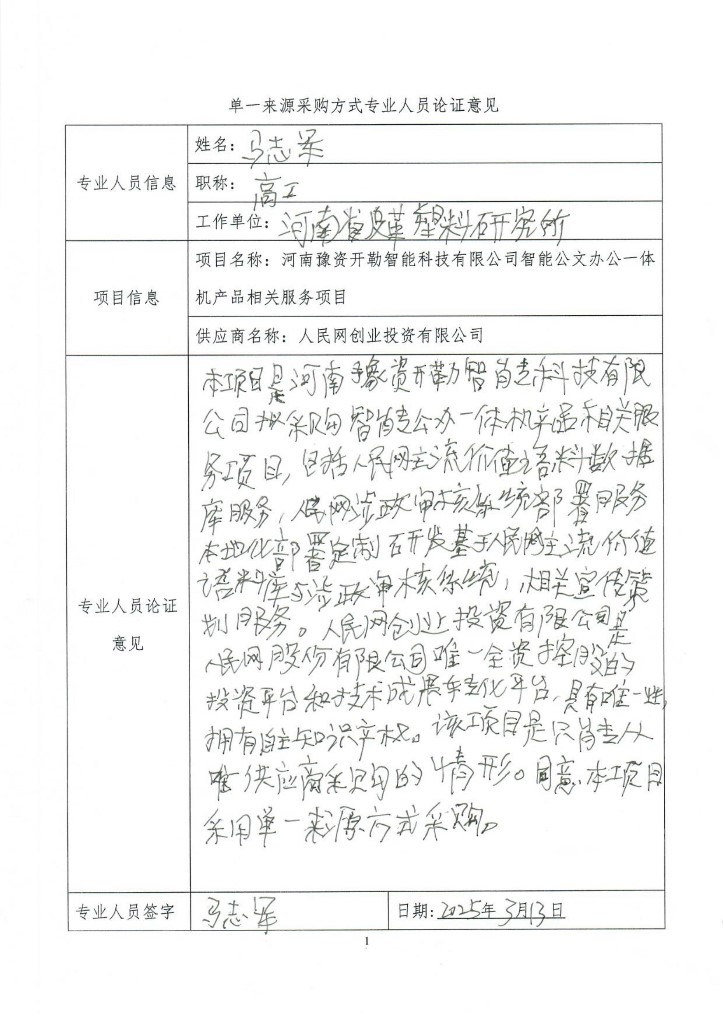 单一来源采购方式专业人员论证意见
专业人员信息
姓名：马志军
职称：高工
工作单位：河南省皮革塑料研究所
项目信息
项目名称：河南豫资开勒智能科技有限公司智能公文办公一体
机产品相关服务项目
供应商名称：人民网创业投资有限公司
专业人员论证
意见
本项目是河南豫资开勒智能科技有限
公司拟采购智能办公一体机产品相关服
务项目，包括人民网主流价值语料数据
库服务，人民网涉政审核系统部署服务
本地化部署定制研发基于人民网主流价值
语料库与涉政审核系统，相关宣传策
划服务。人民网创业投资有限公司是
人民网股份有限公司唯一全资控股的
投资平台和技术成果转化平台，具有唯一性，
拥有自主知识产权。该项目是只能从
唯一供应商采购的情形。同意本项目
采用单一来源方式采购。
专业人员签字
马志军
日期：2025年3月13日
1